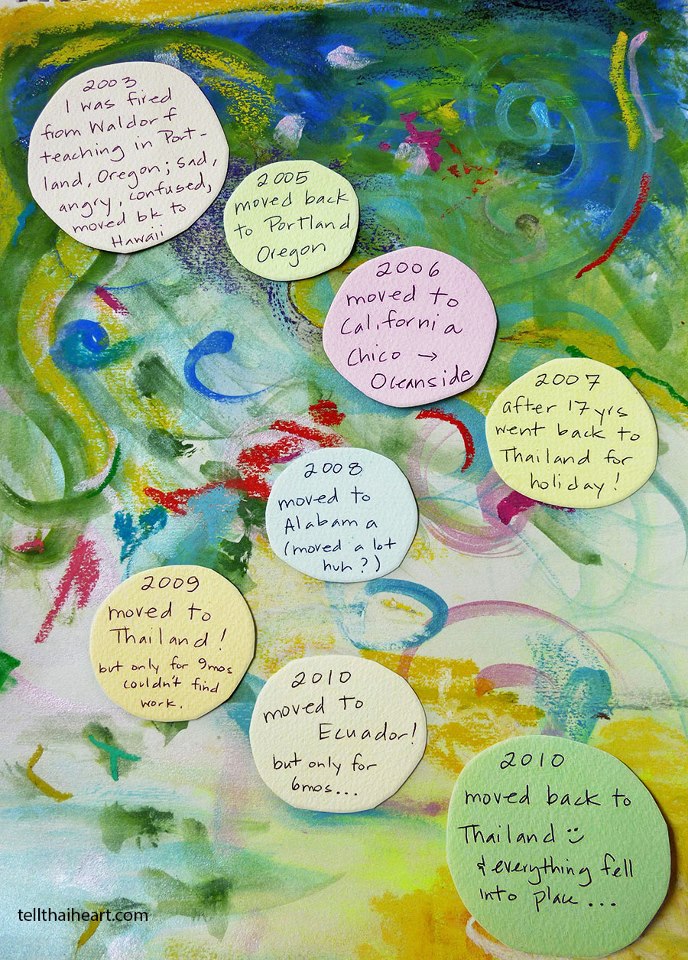 2003
I was fired
from Waldorf
teaching in Port-
land, Oregon; sad,
angry, confused,
moved bk to
Hawaii
2005
moved back
to Portland
Oregon
2006
moved to
California
Chico →
Oceanside
2007
after 17 yrs
went back to
Thailand for
holiday!
2008
moved to
Alabama
(moved a lot
huh?)
2009
moved to
Thailand!
but only for 9mos
couldn't find
work.
2010
moved to
Ecuador!
but only for
6mos...
2010
moved back to
Thailand :)
& everything fell
into place...
tellthaiheart.com